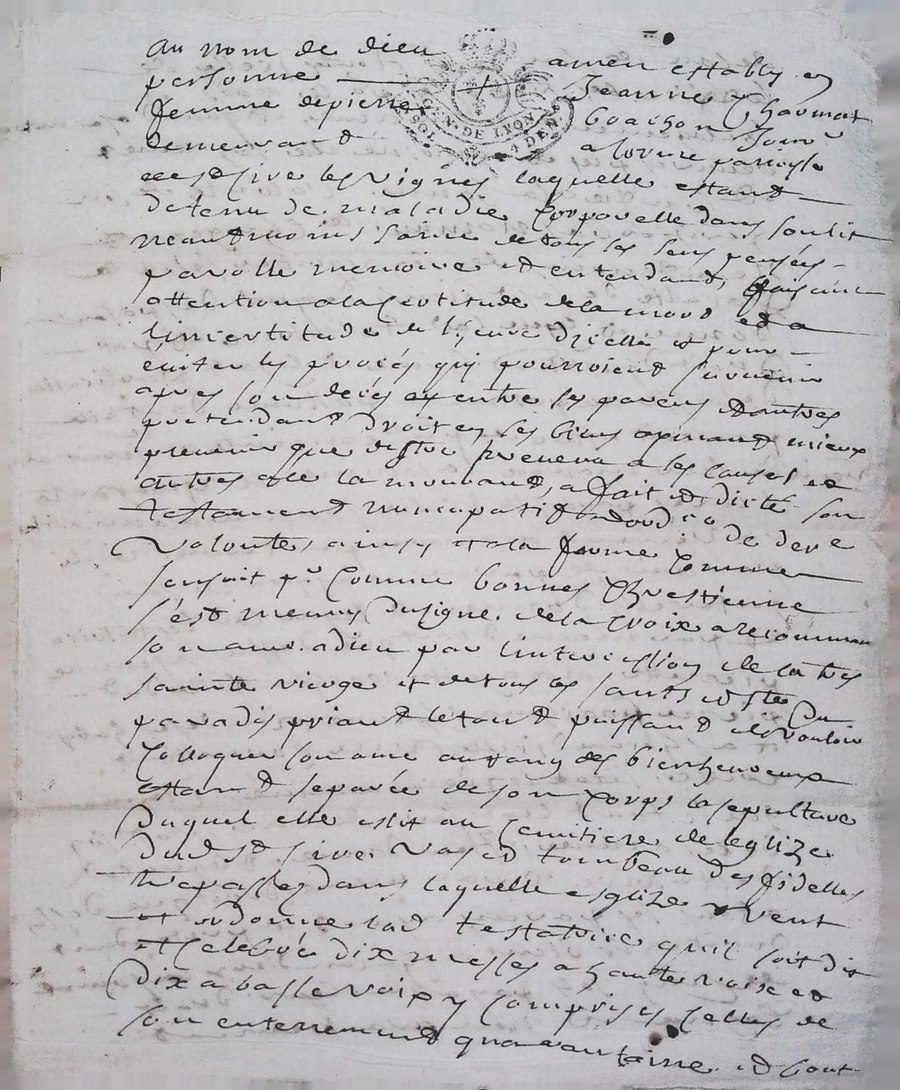 au nom de dieu amen estably en
personne Jeanne Chaumat
femme de pierre boachon Jour
demeurant a lorme parroysse
de st sire les vignes laquelle estant
detenu de maladie Corporelle dans son lit
neantmoins saine de tous ses sens pensées
parolle memoire et entendant, faisant
attention a la certitude de la mort et a
l'insertitude de l'heure d'icelle et pour
eviter les procés qui pourroient survenir
apres son decés entre ses parens et autres
pretendant droit en ses biens aymant mieux
prevenir que destre prevenu a ses causes et
autres a ce la mouvant, a fait et dicté son
testament nuncupatif et ordce de dere
volonte, ainsy et en la forme comme
sensuit pr. Comme bonnes Chrestienne
s'est meunis du signe de la Croix a recomman
son ame a dieu par l'intercession de la tres
sainte vierge et de tous les saints et stes du
paradis priant le tout puissant de vouloir
Colloquer son ame au rang des bienheureux
estant separée de son Corps la sepulture
Duquel elle eslit au Cemitiere de leglize
Dudt st sire vas et tombeau des fidelles
trepasses dans laquelle esglize veut
et ordonne lad testatrice quil soit dit
et Celebré dix messes a haute voix et
dix a basse voix y comprises celles de
son enterrement quarantaine et bout
GEN. DE LYON
4 DEN.